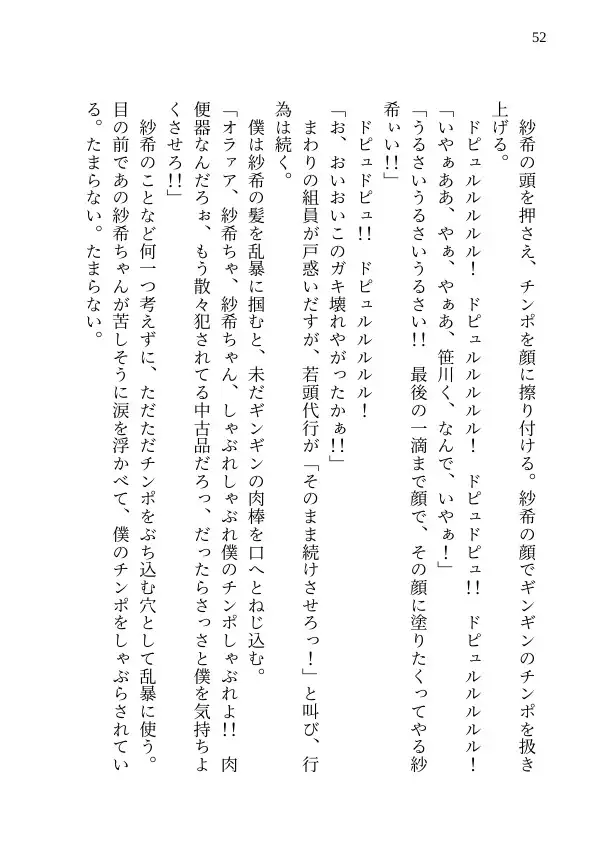 52
紗希の頭を押さえ、チンポを顔に擦り付ける。紗希の顔でギンギンのチンポを扱き
上げる。
ドピュルルルルル！　ドピュルルルルル！　ドピュドピュ!!　ドピュルルルルル！
「いやぁああ、やぁ、やぁあ、笹川く、なんで、いやぁ！」
「うるさいうるさいうるさい!!　最後の一滴まで顔で、その顔に塗りたくってやる紗
希ぃい!!」
ドピュドピュ!!　ドピュルルルルル！
「お、おいおいこのガキ壊れやがったかぁ!!」
まわりの組員が戸惑いだすが、若頭代行が「そのまま続けさせろっ！」と叫び、行
為は続く。
僕は紗希の髪を乱暴に掴むと、未だギンギンの肉棒を口へとねじ込む。
「オラァア、紗希ちゃ、紗希ちゃん、しゃぶれしゃぶれ僕のチンポしゃぶれよ!!　肉
便器なんだろぉ、もう散々犯されてる中古品だろっ、だったらさっさと僕を気持ちよ
くさせろ!!」
紗希のことなど何一つ考えずに、ただただチンポをぶち込む穴として乱暴に使う。
目の前であの紗希ちゃんが苦しそうに涙を浮かべて、僕のチンポをしゃぶらされてい
る。たまらない。たまらない。